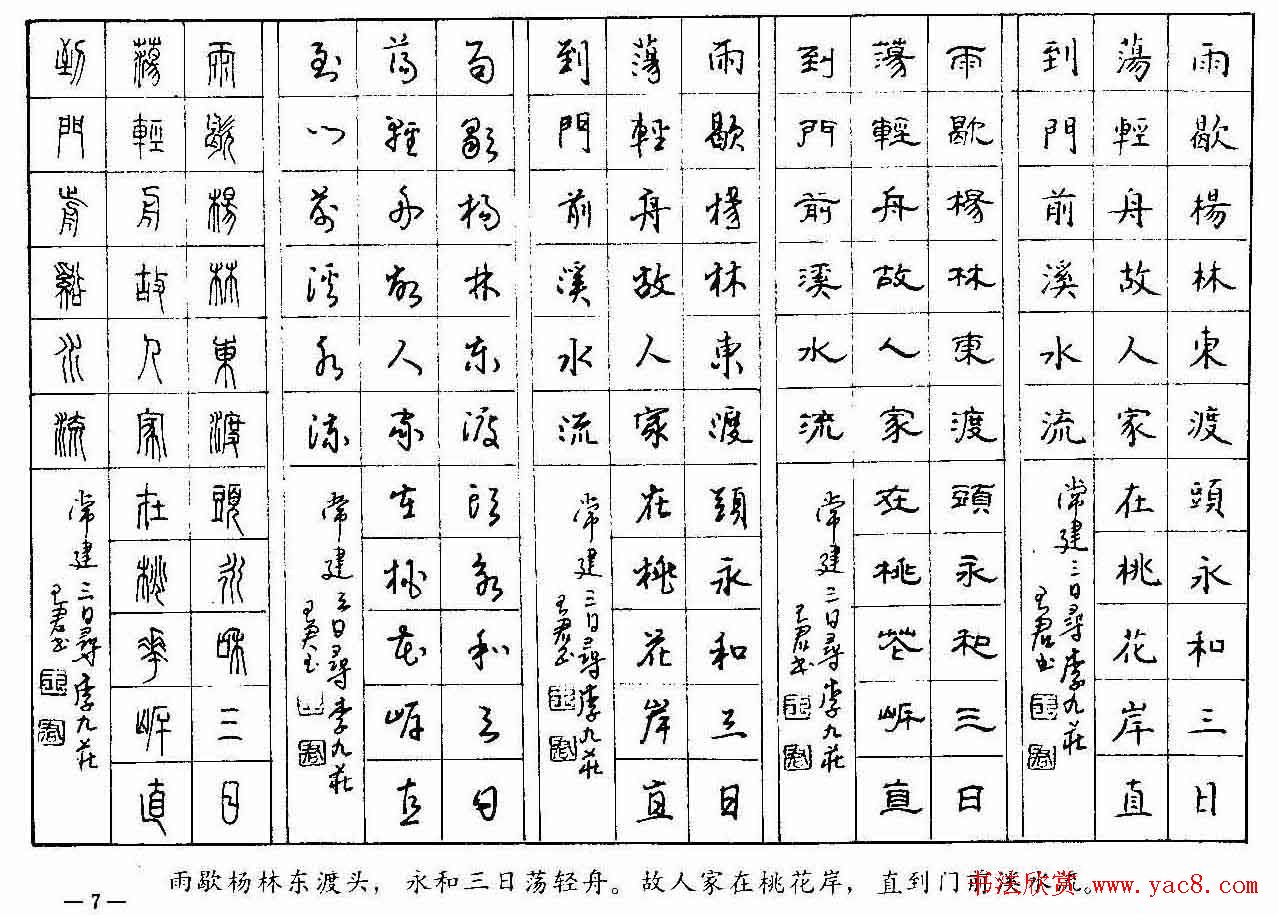 雨歇楊林東渡頭永和三日
蕩輕舟故人家在桃花岸直
到門前溪水流
常建三日尋李九莊
王君书
雨歇楊林東渡頭永和三日
蕩輕舟故人家在桃花岸直
到門前溪水流
常建三日尋李九莊
雨歇楊林東渡頭永和三日
蕩輕舟故人家在桃花岸直
到門前溪水流
常建三日尋李九莊
雨歇楊林東渡頭永和三日
蕩輕舟故人家在桃花岸直
到門前溪水流
常建三日尋李九莊
雨歇楊林東渡頭永和三日
蕩輕舟故人家在桃花岸直
到門前谿水流
常建三日尋李九莊
雨歇杨林东渡头，永和三日荡轻舟。故人家在桃花岸，直到门前溪水流。
书法欣赏 www.yac8.com
—7—